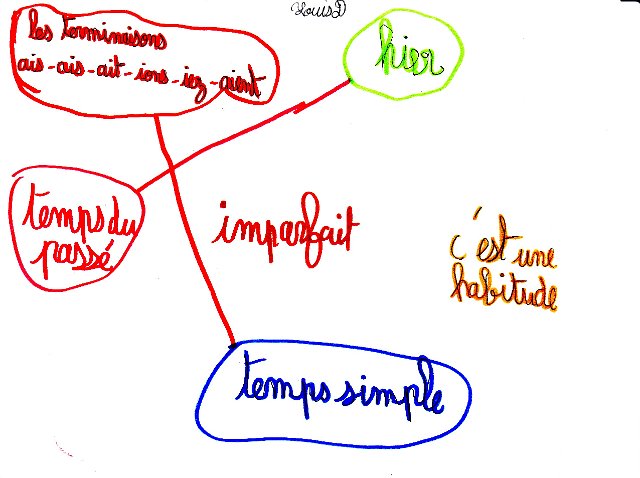 Louis D
les terminaisons
ais - ais - ait - ions - iez - aient
hier
temps du
passé
imparfait
c'est une
habitude
temps simple